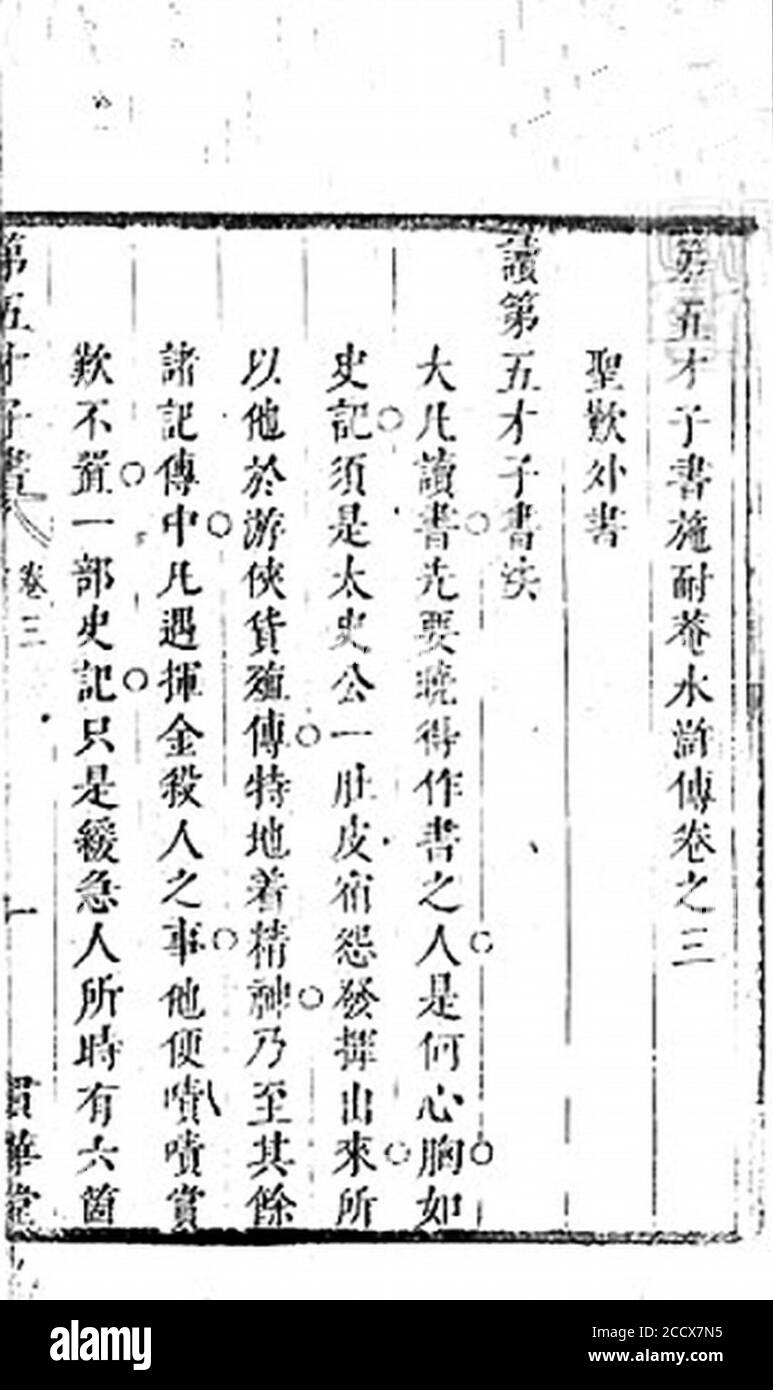 第五才子書施耐菴水滸傳卷之三
聖歎外書
讀第五才子書法
大凡讀書先要曉得作書之人是何心胸如
史記須是太史公一肚皮宿怨發揮出來所
以他於游俠貨殖傳特地着精神乃至其餘
諸記傳中凡遇揮金殺人之事他便嘖嘖賞
歎不置一部史記只是緩急人所時有六箇
第五才子書 卷三 一 貫華堂
alamy
Image ID: 2CCX7N5
www.alamy.com